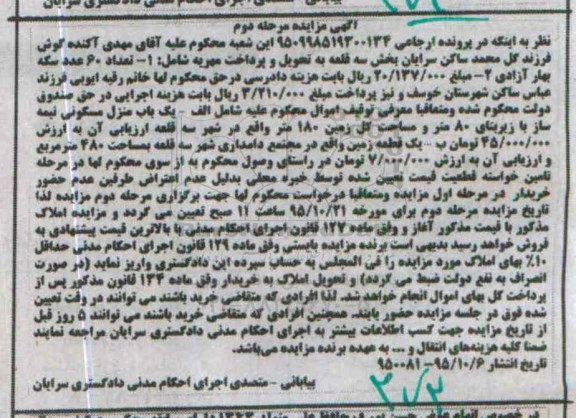 بیابانی - متصدی اجرای احکام مدنی دادگستری سرایان
آگهی مزایده مرحله دوم
نظر به اینکه در پرونده ارجاعی ۹۵۰۹۹۸۵۱۹۳۰۰۱۳۴ این شعبه محکوم علیه آقای مهدی آکنده گوش
فرزند گل محمد ساکن سرایان بخش سه قلعه به تحویل و پرداخت مهریه شامل: ۱- تعداد ۶۰ عدد سکه
بهار آزادی ۲- مبلغ ۲۰/۱۳۷/۰۰۰ ریال بابت هزینه دادرسی درحق محکوم لها خانم رقیه ایوبی فرزند
عباس ساکن شهرستان خوسف و نیز پرداخت مبلغ ۳/۲۱۰/۰۰۰ ریال بابت هزینه اجرایی در حق صندوق
دولت محکوم شده ومتعاقبا معرفی توقیف اموال محکوم علیه شامل الف - یک باب منزل مسکونی نیمه
ساز با زیربنای ۸۰ متر و مساحت کل زمین ۱۸۰ متر واقع در شهر سه قلعه ارزیابی آن به ارزش
۴۵/۰۰۰/۰۰۰ تومان ب - یک قطعه زمین واقع در مجتمع دامداری شهر سه قلعه بمساحت ۴۸۰ مترمربع
و ارزیابی آن به ارزش ۷/۰۰۰/۰۰۰ تومان در راستای وصول محکوم به از سوی محکوم لها در مرحله
تامین خواسته قطعیت قیمت تعیین شده توسط خبره محلی بدلیل عدم اعتراض طرفین عدم حضور
خریدار در مرحله اول مزایده ومتعاقبا درخواست محکوم لها جهت برگزاری مرحله دوم مزایده لذا
تاریخ مزایده مرحله دوم برای مورخه ۹۵/۱۰/۲۱ ساعت ۱۱ صبح تعیین می گردد و مزایده املاک
مذکور با قیمت مذکور آغاز و وفق ماده ۱۲۷ قانون اجرای احکام مدنی با بالاترین قیمت پیشنهادی به
فروش خواهد رسید بدیهی است برنده مزایده بایستی وفق ماده ۱۲۹ قانون اجرای احکام مدنی حداقل
۱۰٪ بهای املاک مورد مزایده را فی المجلس به حساب سپرده این دادگستری واریز نماید (در صورت
انصراف به نفع دولت ضبط می گردد) و تحویل املاک به خریدار وفق ماده ۱۳۴ قانون مذکور پس از
پرداخت کل بهای اموال انجام خواهد شد. لذا افرادی که متقاضی خرید باشند می توانند در وقت تعیین
شده فوق در جلسه مزایده حضور یابند. همچنین افرادی که متقاضی خرید باشند می توانند ۵ روز قبل
از تاریخ مزایده جهت کسب اطلاعات بیشتر به اجرای احکام مدنی دادگستری سرایان مراجعه نمایند
ضمنا کلیه هزینه‌های انتقال و ... به عهده برنده مزایده می‌باشد.
تاریخ انتشار ۹۵/۱۰/۶-۹۵۰۰۸۱
بیابانی - متصدی اجرای احکام مدنی دادگستری سرایان